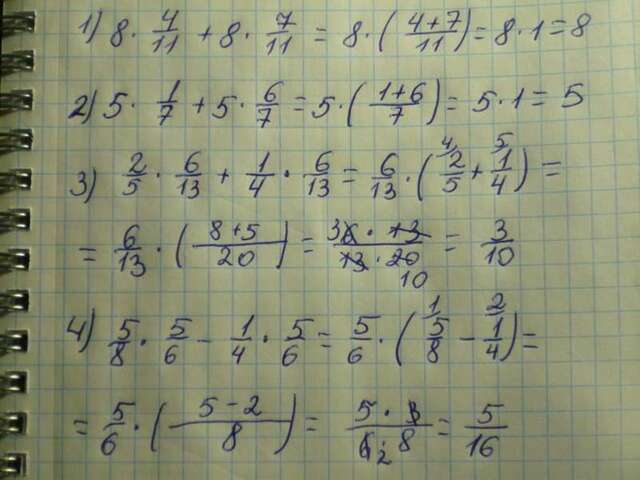 1) 8 · 4/11 + 8 · 7/11 = 8 · ( 4+7/11 ) = 8 · 1 = 8
2) 5 · 1/7 + 5 · 6/7 = 5 · ( 1+6/7 ) = 5 · 1 = 5
3) 2/5 · 6/13 + 1/4 · 6/13 = 6/13 · ( ⁴2/5 + ⁵1/4 ) =
= 6/13 · ( 8+5/20 ) = 3 6 · 13/13 · 20 10 = 3/10
4) 5/8 · 5/6 - 1/4 · 5/6 = 5/6 · ( ¹5/8 - ²1/4 ) =
= 5/6 · ( 5-2/8 ) = 5 · 3/6 2 · 8 = 5/16